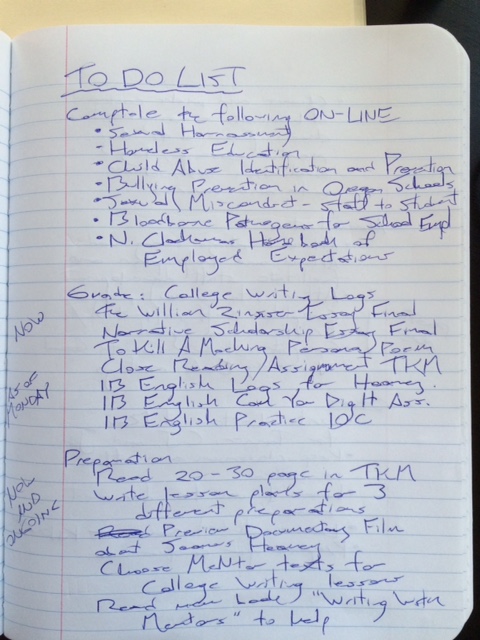 TO DO LIST
Complete the following ON-LINE
• Sexual Harrassment
- Homeless Education
• Child Abuse Identification and Prevention
• Bullying Prevention in Oregon Schools
• Sexual Misconduct - Staff to Student
• Bloodborne Pathogens for School Empl
• N. Clackamas Handbook of
Employed Expectations
Grade: College Writing Logs
The William Zinsser Essay Final
Narrative Scholarship Essay Final
NOW
To Kill A Mocking Persona Poem
Close Reading Assignment TKM
IB English Logs for Heaney.
AS OF
MONDAY
IB English Can You Dig It Ass.
IB English Practice IOC
Preparation
Read 20-30 page in TKM
NOW
AND
ONGOING
Write lesson plans for 3
different preparations
Preview Documentary Film
about Seamus Heaney
Choose Mentor texts for
College Writing lessons
Read new book "Writing With
Mentors" to help